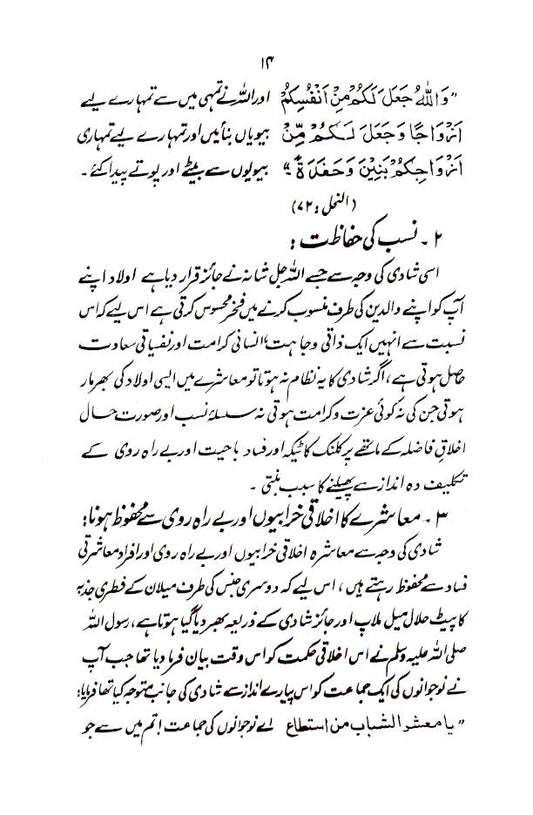 ۱۴
"وَاللّٰهُ جَعَلَ لَكُمْ مِنْ اَنْفُسِكُمْ اور اللہ نے تمہی میں سے تمہارے لیے
اَزْوَاجًا وَجَعَلَ لَكُمْ مِّنْ بیویاں بنائیں اور تمہارے لیے تمہاری
اَزْوَاجِكُمْ بَنِيْنَ وَحَفَدَةً" بیویوں سے بیٹے اور پوتے پیدا کئے۔
(النحل: ۷۲)
۲۔ نسب کی حفاظت:
اسی شادی کی وجہ سے جسے اللہ جل شانہ نے جائز قرار دیا ہے اولاد اپنے
آپ کو اپنے والدین کی طرف منسوب کرنے میں فخر محسوس کرتی ہے اس لیے کہ اس
نسبت سے انہیں ایک ذاتی وجاہت، انسانی کرامت اور نفسیاتی سعادت
حاصل ہوتی ہے، اگر شادی کا یہ نظام نہ ہوتا تو معاشرے میں ایسی اولاد کی بھرمار
ہوتی جن کی نہ کوئی عزت و کرامت ہوتی نہ سلسلۂ نسب اور صورت حال
اخلاق فاضلہ کے ماتھے پر کلنک کا ٹیکہ اور فساد باحیت اور بے راہ روی کے
تکلیف دہ انداز سے پھیلنے کا سبب بنتی۔
۳۔ معاشرے کا اخلاقی خرابیوں اور بے راہ روی سے محفوظ ہونا:
شادی کی وجہ سے معاشرہ اخلاقی خرابیوں اور بے راہ روی اور افراد معاشرتی
فساد سے محفوظ رہتے ہیں، اس لیے کہ دوسری جنس کی طرف میلان کے فطری جذبہ
کا پیٹ حلال میل ملاپ اور جائز شادی کے ذریعہ بھر دیا گیا ہوتا ہے، رسول اللہ
صلی اللہ علیہ وسلم نے اس اخلاقی حکمت کو اس وقت بیان فرما دیا تھا جب آپ
نے نوجوانوں کی ایک جماعت کو اس پیارے انداز سے شادی کی جانب متوجہ کیا تھا فرمایا:
"يا معشر الشباب من استطاع اے نوجوانوں کی جماعت! تم میں سے جو